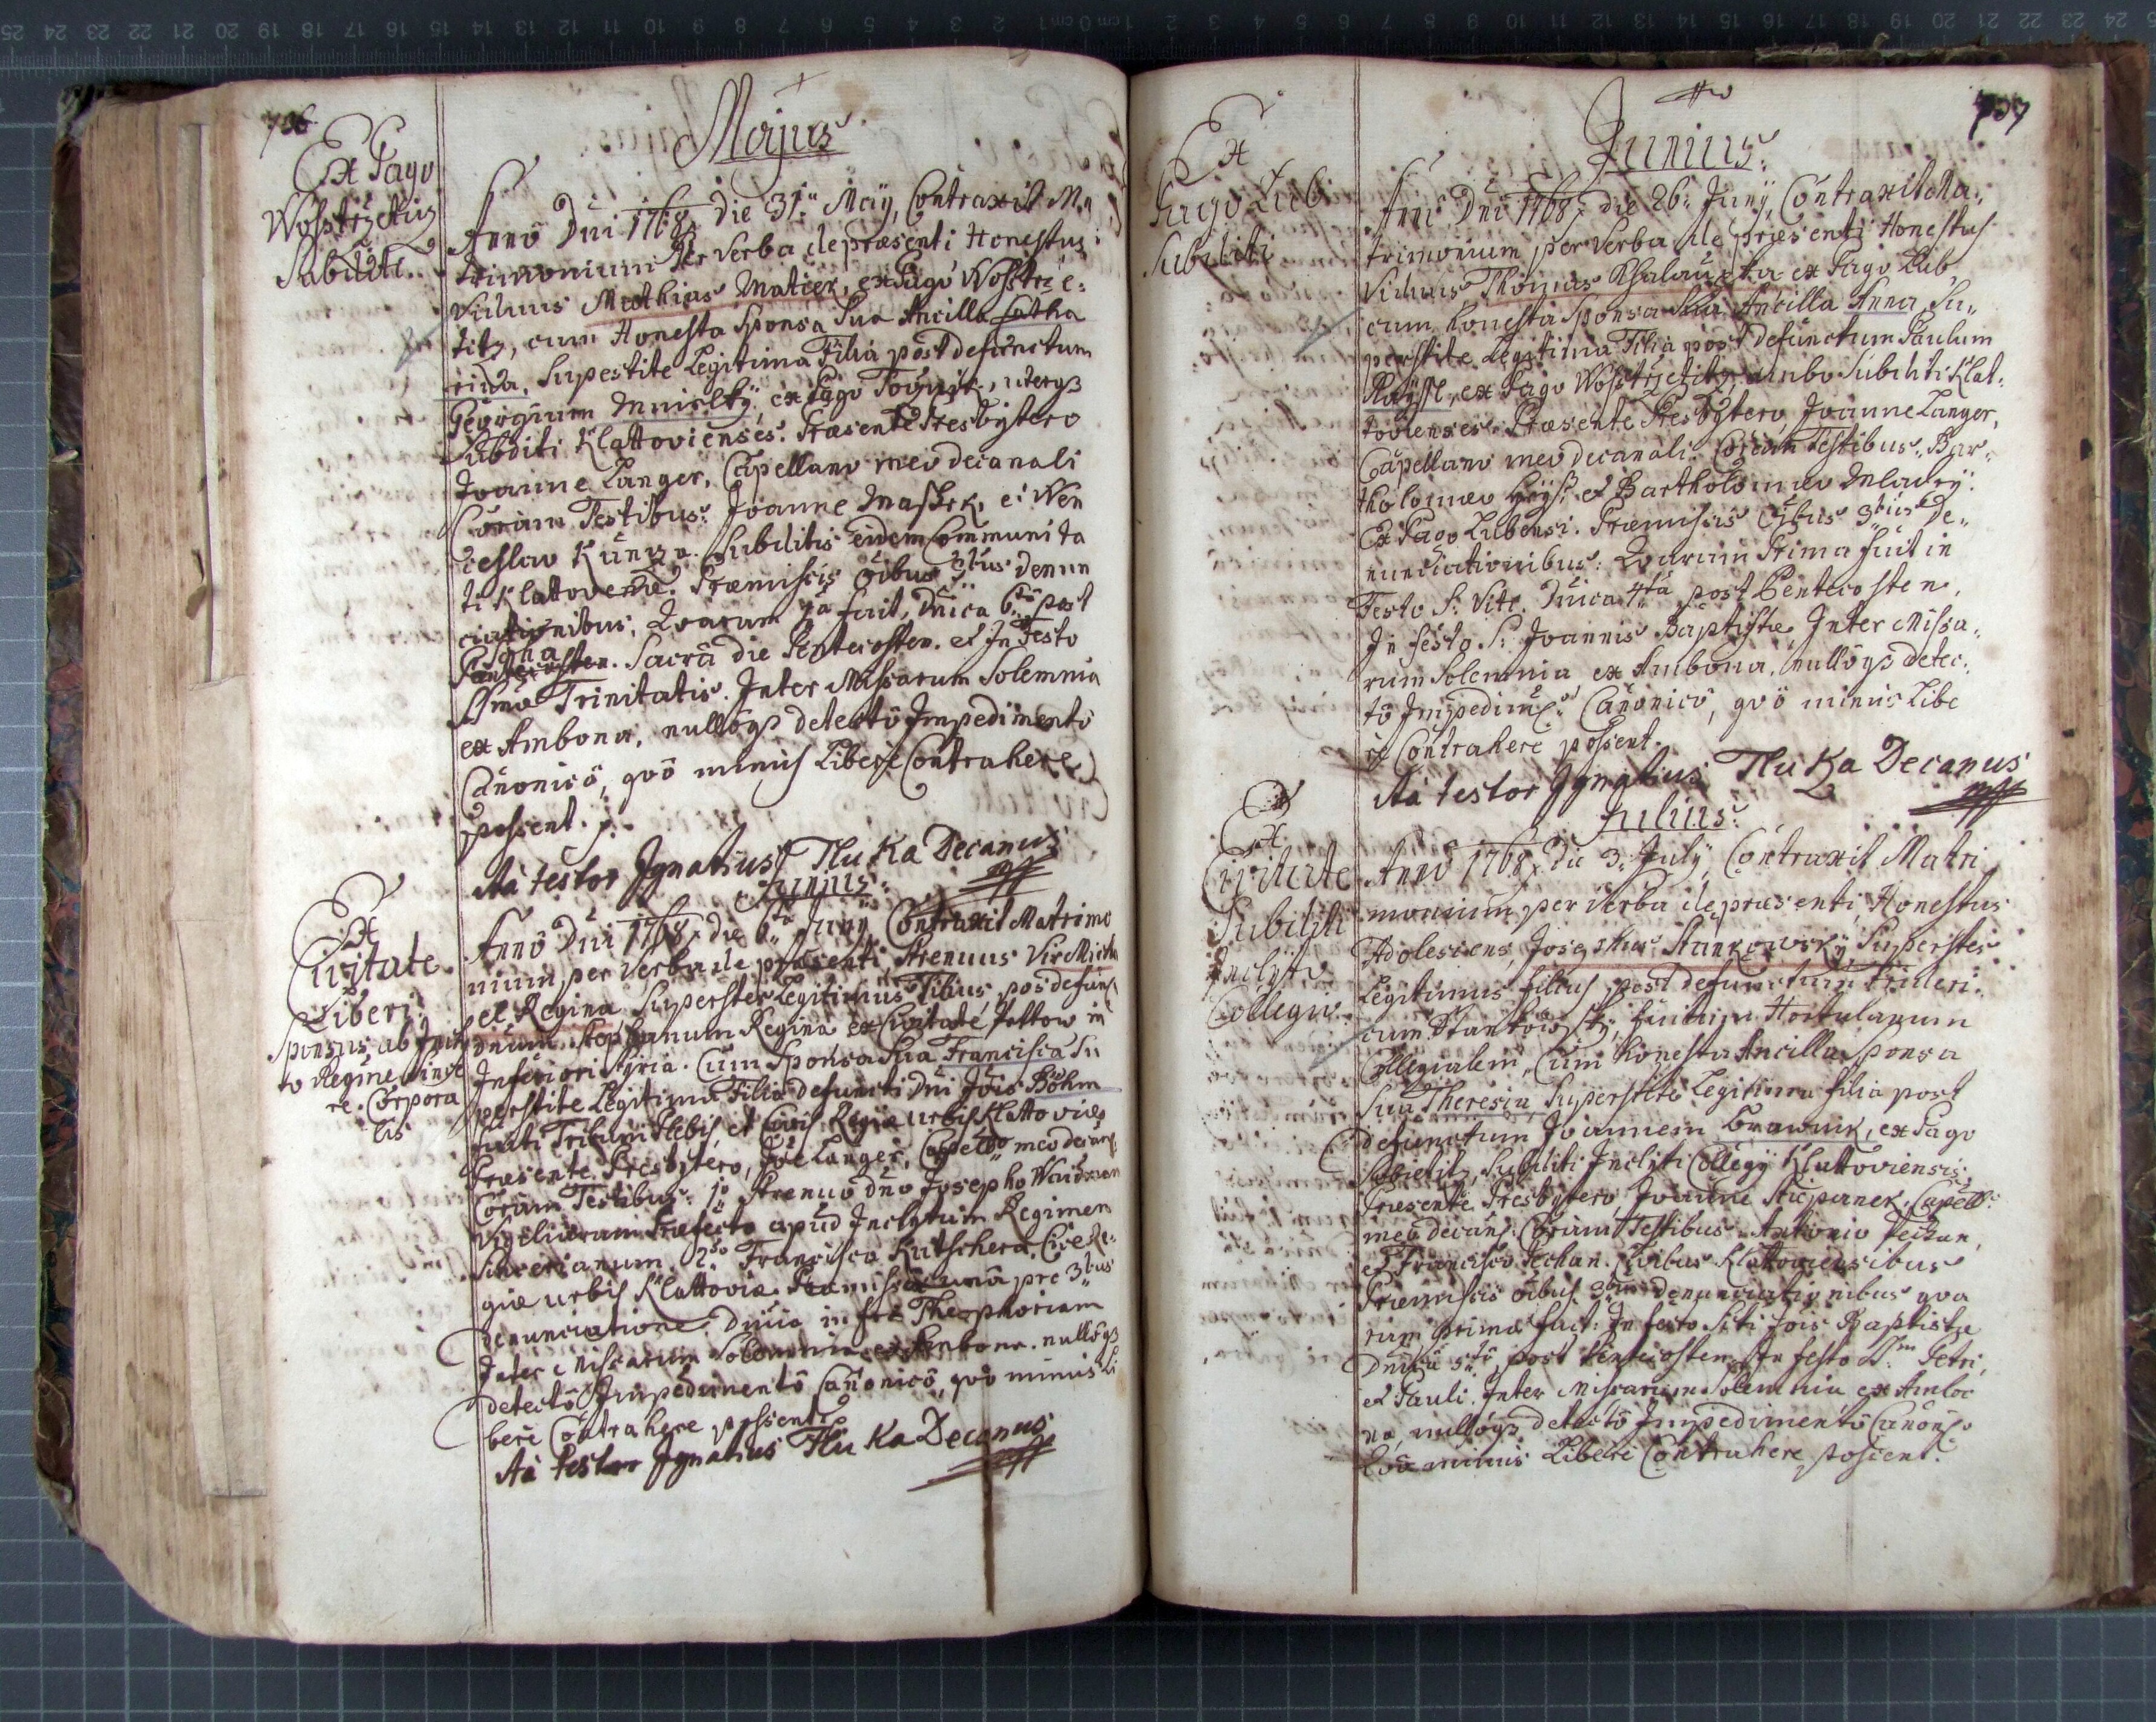 706
Majus
Ex Pago
Wosstržetitz
Subditi.
Anno Dni 1768. die 31. Maij, Contraxit Ma
trimonium per Verba de præsenti Honestus
Viduus Mathias Matiek, ex Pago Wosstrže:
titz, cum Honesta Sponsa Sua Ancilla Catha
rina, Supestite Legitima Filia post defunctum
Georgium, ex Pago, uterq3
Subditi Klattovienses. Præsente Presbytero
Joanne Langer, Capellano meo decanali
Coram Testibus: Joanne Massek, et Wen
ceslao Subditis eidem Communita
ti Klattoven. Præmissis oibus 3bus denun
ciationibus, Quarum 1a fuit, Dnica 6ta post
Pascha
Pentecosten. Sacra die Pentecosten. et In Festo
SSmæ Trinitatis. Inter Missarum Solemnia
ex Ambona, nulloq3 detecto Impedimento
Canonico, quo minus Libere Contrahere
possent.
Ita testor Ignatius Tluka Decanus
mpp
Junius:
Ex
Civitate
Liberi:
Sponsus ab Incly
to Regim Since
re. Corpora
lis
Anno Dni 1768. die 6ta Juny Contraxit Matrimo
nium per Verba de præsenti, Strenuus Vir Mich
el Regina Superstes Legitimus Filius, pos defunc
Dnum Stephanum Regina ex Civitate in
Inferiori Styria. Cum Sponsa Sua Francisca Su
perstite Legitima Filia defuncti Dni Jois Böhm
Tribuni Plebis, et Civis Regiæ urbis Klattoviæ
Præsente Presbytero, Joe Langer, Capello meo decan.
Coram Testibus: 1o Strenuo Dno Josepho
Vigiliarum Præfecto apud Inclytum Regimen
Sincerianum 2do Francisco Kutschera, Cive Re:
giæ urbis Klattoviæ. Præmissa una pre 3bus
denunciatione. Dnica infra Theophoriam
Inter Missarum Solemnia ex Ambona. nulloq3
detecto Impedimento Canonico, quo minus Li
bere Contrahere possent.
Ita testor Ignatius Tluka Decanus
mpp
707
Junius:
Ex
Pago Lub
Subditi
Anno Dni 1768. die 26. Juny, Contraxit Ma:
trimonium per Verba de præsenti Honestus
Viduus Thomas Chalaupka ex Pago Lub
cum honesta Sponsa Sua Ancilla Anna Su:
perstite Legitima Filia post defunctum Paulum
ex Pago Wosstržetitz, ambo Subditi Klat:
tovienses. Præsente Presbytero, Joanne Langer,
Capellano meo decanali. Coram Testibus: Bar:
tholomæo et Bartholomæo Mladey:
Ex Pago Lubensi. Præmissis oibus 3bus De:
nunciationibus: Quarum Prima fuit in
Festo S: Viti. Dnica 4ta post Pentecosten,
In festo S: Joannis Baptistæ Inter Missa:
rum Solemnia ex Ambona, nulloq3 detec:
to Impedim. Canonico, quo minus Libe
re Contrahere possent.
Ita testor Ignatius Tluka Decanus
mpp
Julius:
Ex
Civitate
Subditi
Inclyti
Collegii
Anno 1768. Die 3. July, Contraxit Matri
monium per Verba de præsenti, Honestus
Adolescens, Josephus Stankowsky, Superstes
Legitimus filius post defunctum Frideri:
cum Stankowsky, Hortulanum
Collegialem, Cum honesta Ancilla Sponsa
Sua Theresia Superstite Legitima filia post
defunctum Joannem, ex Pago
Subditi Inclyti Collegy Klattoviensis,
Præsente Presbytero, Joanne Stiepanek, Capell:
meo decans: Coram Testibus Antonio Techan,
et Francisco Techan. Civibus Klattoviensibus
Præmissis oibus 3bus denunciationibus qva
rum prima fuit: In festo Sti Jois Baptistæ
Dnica 5ta post Pentecosten. In festo SS. Petri,
et Pauli. Inter Missarum Solemnia ex Ambo
na, nulloq3 detecto Impedimento Canonico
Qvo minus Libere Contrahere possent.